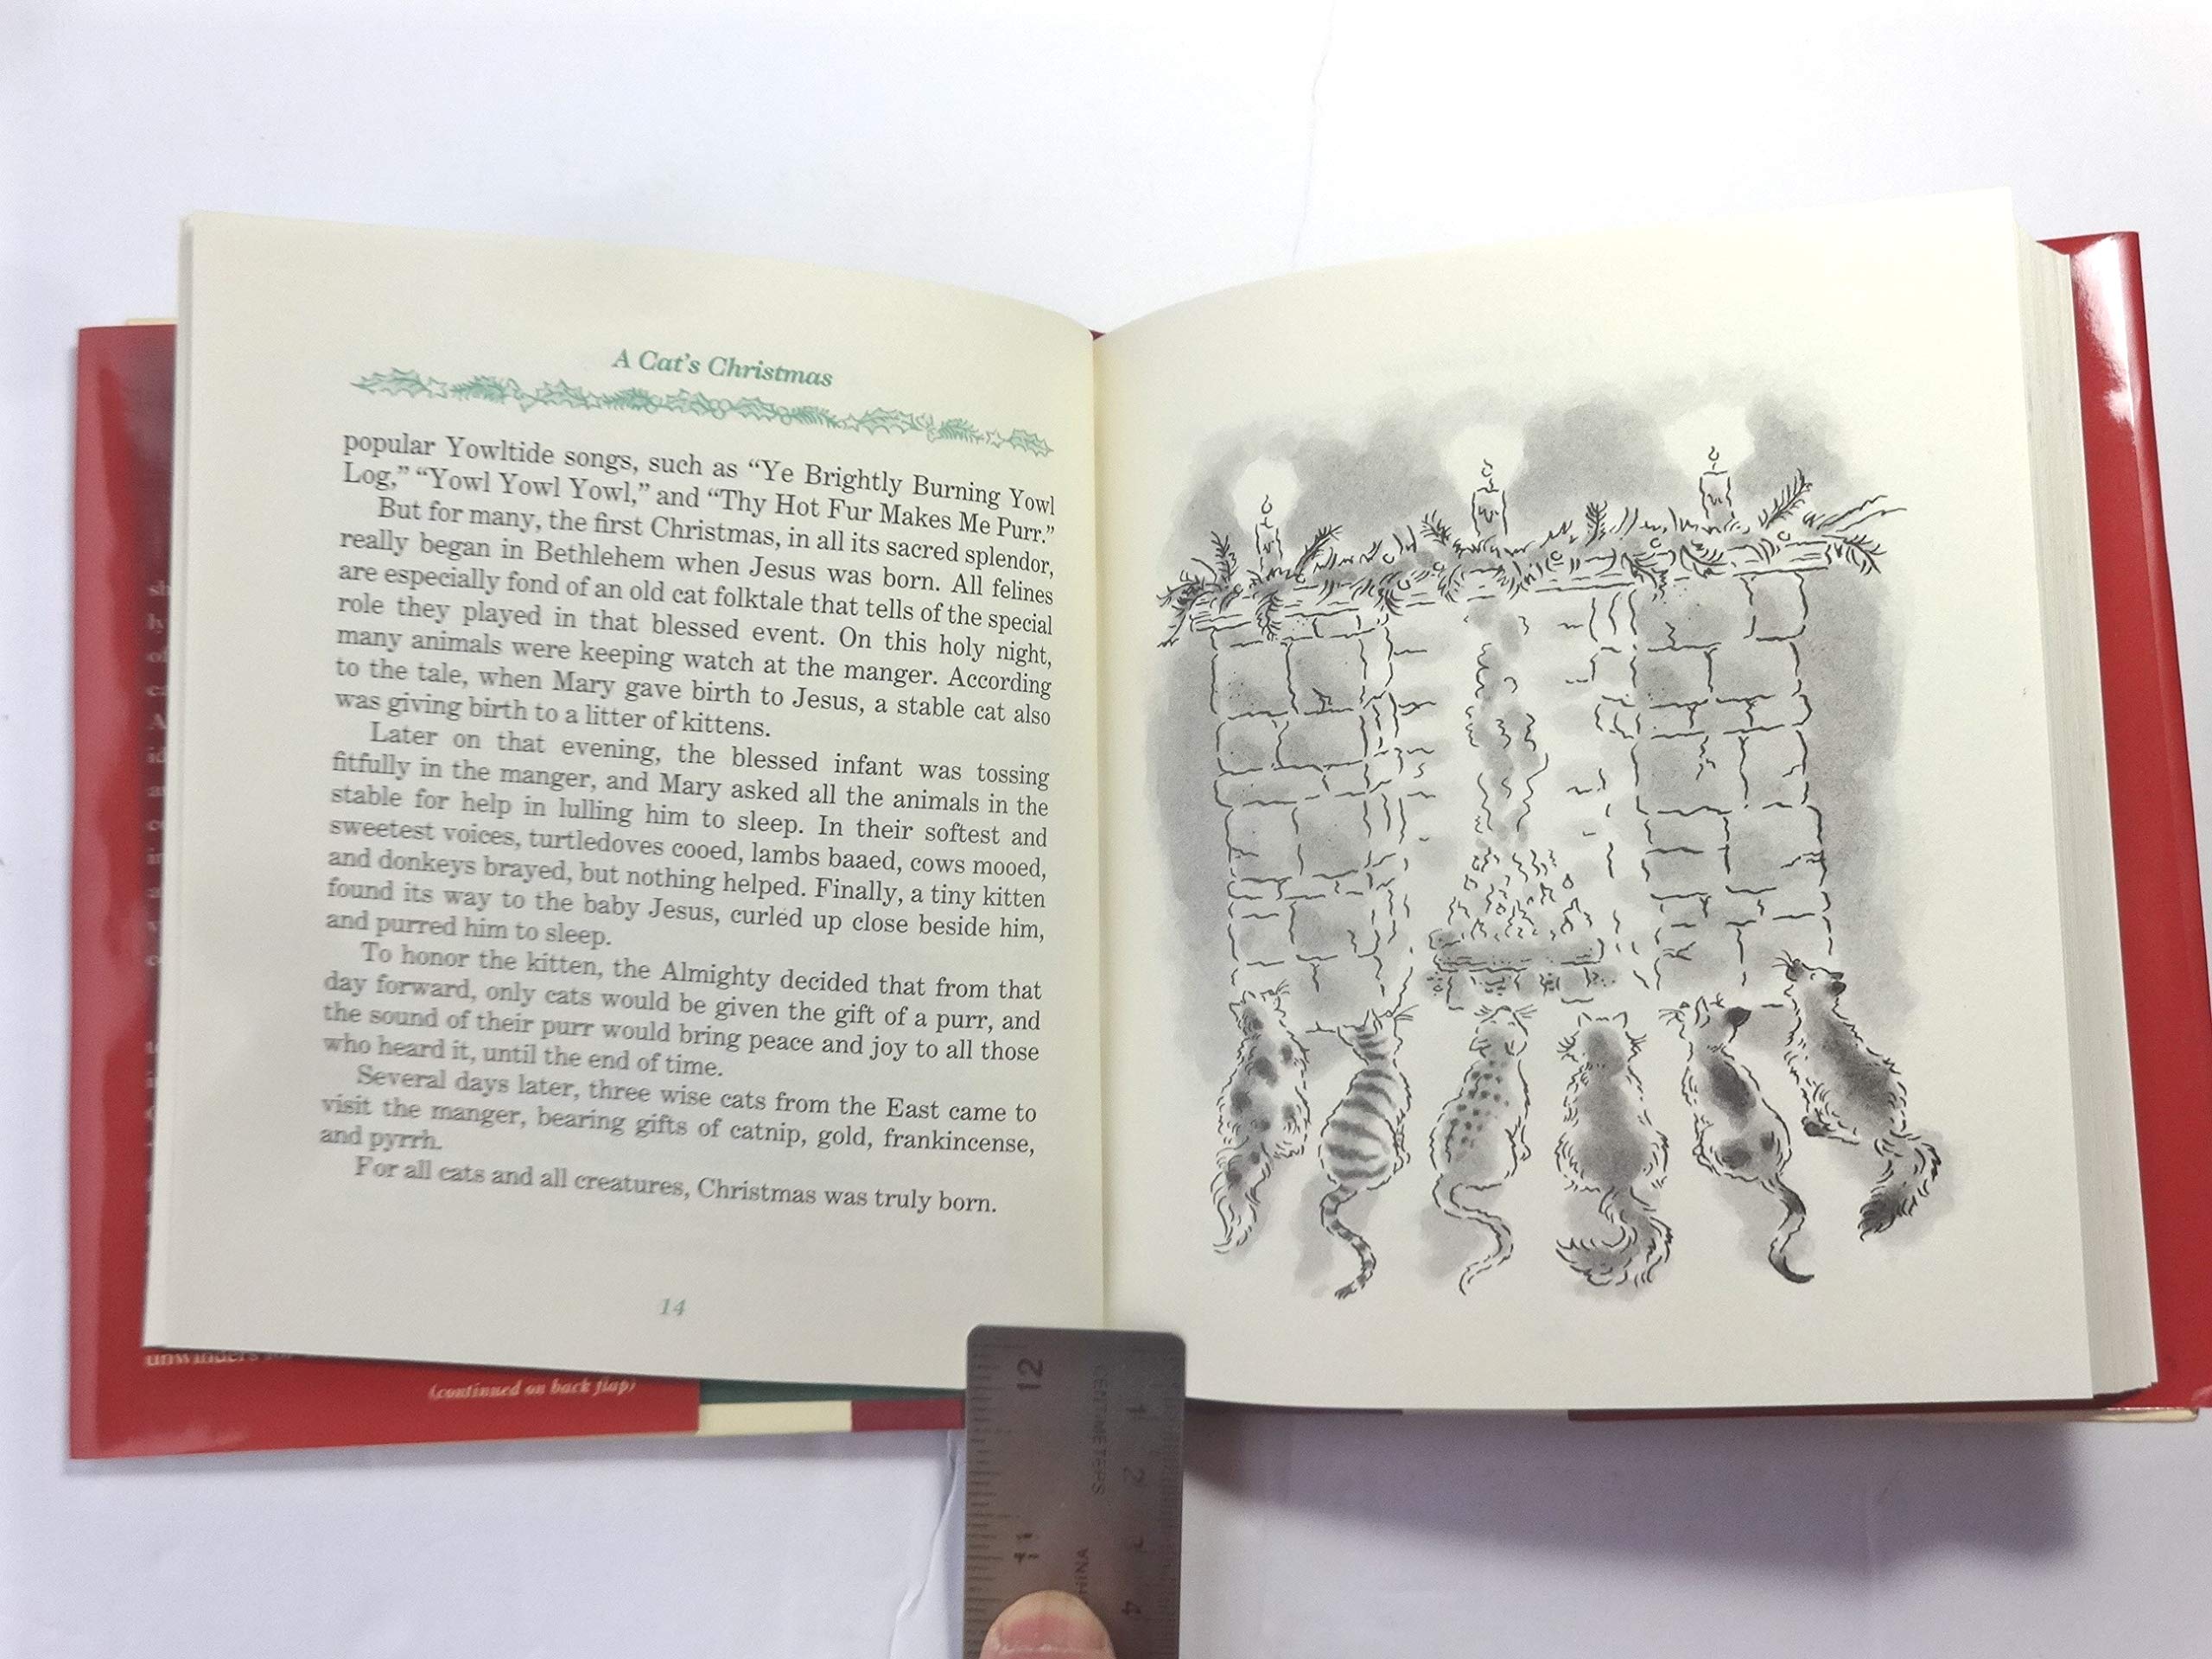 A Cat's Christmas
popular Yowltide songs, such as “Ye Brightly Burning Yowl
Log,” “Yowl Yowl Yowl,” and “Thy Hot Fur Makes Me Purr.”
But for many, the first Christmas, in all its sacred splendor,
really began in Bethlehem when Jesus was born. All felines
are especially fond of an old cat folktale that tells of the special
role they played in that blessed event. On this holy night,
many animals were keeping watch at the manger. According
to the tale, when Mary gave birth to Jesus, a stable cat also
was giving birth to a litter of kittens.
Later on that evening, the blessed infant was tossing
fitfully in the manger, and Mary asked all the animals in the
stable for help in lulling him to sleep. In their softest and
sweetest voices, turtledoves cooed, lambs baaed, cows mooed,
and donkeys brayed, but nothing helped. Finally, a tiny kitten
found its way to the baby Jesus, curled up close beside him,
and purred him to sleep.
To honor the kitten, the Almighty decided that from that
day forward, only cats would be given the gift of a purr, and
the sound of their purr would bring peace and joy to all those
who heard it, until the end of time.
Several days later, three wise cats from the East came to
visit the manger, bearing gifts of catnip, gold, frankincense,
and pyrrh.
For all cats and all creatures, Christmas was truly born.
14
unwinders
(continued on back flap)
12
11
CENTIMETERS
1
2
3
4
CHINA